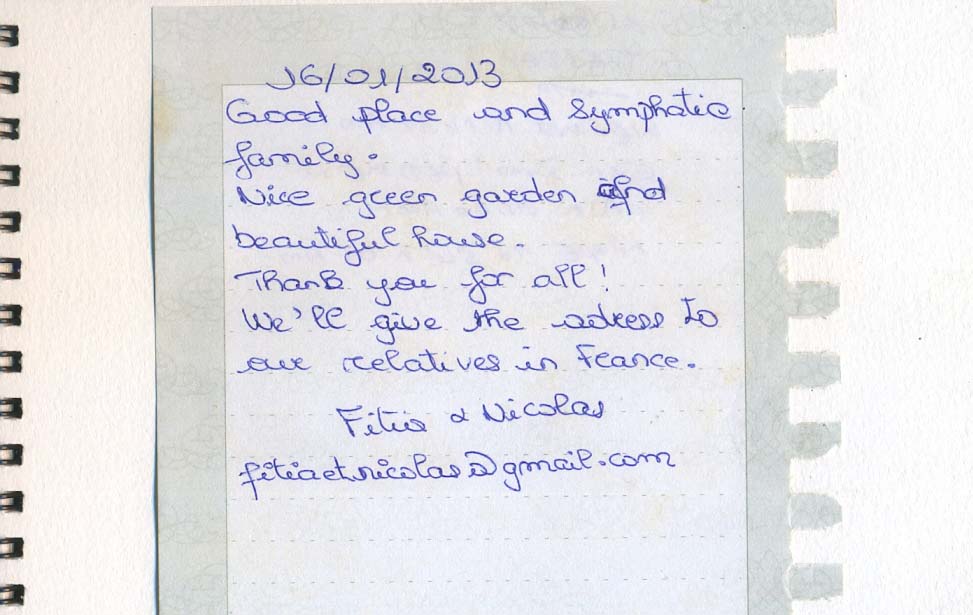 16/01/2013
Good place and Symphatic
family.
Nice green garden and
beautiful house.
Thank you for all!
We'll give the adress to
our relatives in France.
Fitia & Nicolas
fitiaetnicolas@gmail.com